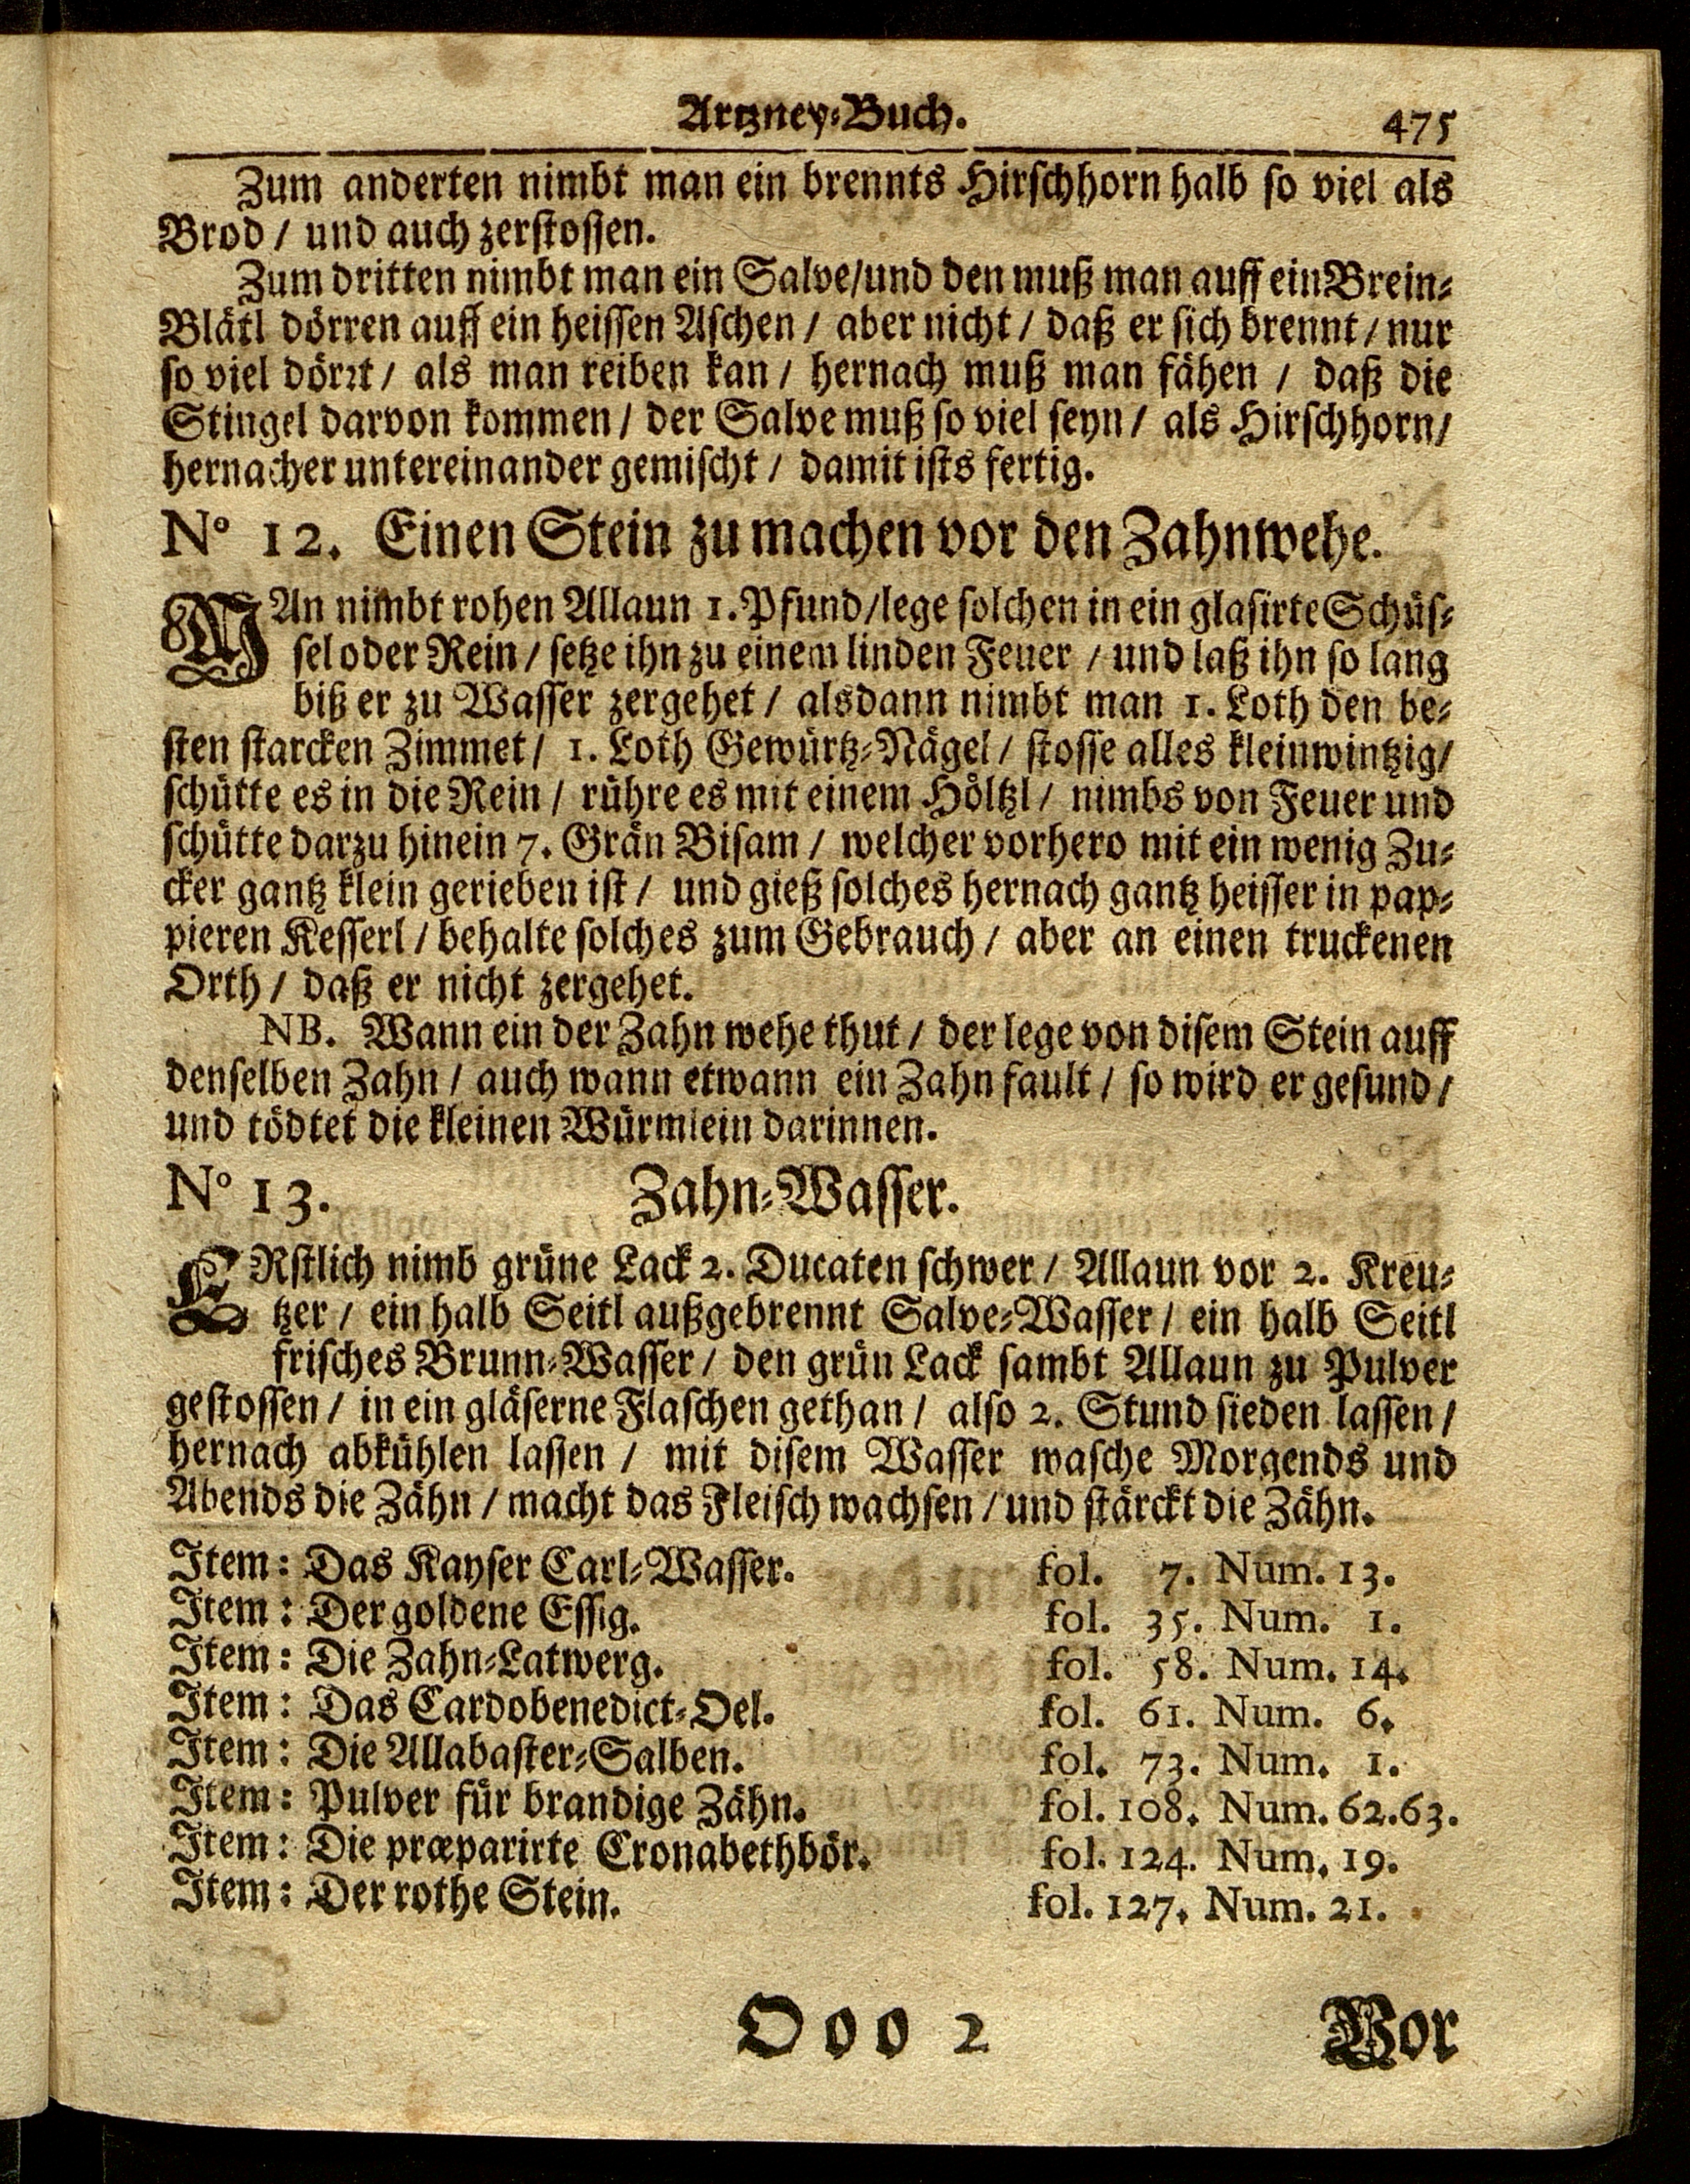 Artzney-Buch.
475
Zum anderten nimbt man ein brennts Hirschhorn halb so viel als
Brod / und auch zerstossen.
Zum dritten nimbt man ein Salve/und den muß man auff ein Brein-
Blätl dörren auff ein heissen Aschen / aber nicht / daß er sich brennt / nur
so viel dörrt / als man reiben kan / hernach muß man fähen / daß die
Stingel darvon kommen / der Salve muß so viel seyn / als Hirschhorn/
hernacher untereinander gemischt / damit ists fertig.
N° 12. Einen Stein zu machen vor den Zahnwehe.
MAn nimbt rohen Allaun 1. Pfund/lege solchen in ein glasirte Schüs-
sel oder Rein / setze ihn zu einem linden Feuer / und laß ihn so lang
biß er zu Wasser zergehet / alsdann nimbt man 1. Loth den be-
sten starcken Zimmet / 1. Loth Gewürtz-Nägel / stosse alles kleinwintzig/
schütte es in die Rein / rühre es mit einem Höltzl / nimbs von Feuer und
schütte darzu hinein 7. Grän Bisam / welcher vorhero mit ein wenig Zu-
cker gantz klein gerieben ist / und gieß solches hernach gantz heisser in pap-
pieren Kesserl / behalte solches zum Gebrauch / aber an einen truckenen
Orth / daß er nicht zergehet.
NB. Wann ein der Zahn wehe thut / der lege von disem Stein auff
denselben Zahn / auch wann etwann ein Zahn fault / so wird er gesund /
und tödtet die kleinen Würmlein darinnen.
N° 13. Zahn-Wasser.
ERstlich nimb grüne Lack 2. Ducaten schwer / Allaun vor 2. Kreu-
tzer / ein halb Seitl außgebrennt Salve-Wasser / ein halb Seitl
frisches Brunn-Wasser / den grün Lack sambt Allaun zu Pulver
gestossen / in ein gläserne Flaschen gethan / also 2. Stund sieden lassen /
hernach abkühlen lassen / mit disem Wasser wasche Morgends und
Abends die Zähn / macht das Fleisch wachsen / und stärckt die Zähn.
Item: Das Kayser Carl-Wasser. fol. 7. Num. 13.
Item: Der goldene Essig. fol. 35. Num. 1.
Item: Die Zahn-Latwerg. fol. 58. Num. 14.
Item: Das Cardobenedict-Oel. fol. 61. Num. 6.
Item: Die Allabaster-Salben. fol. 73. Num. 1.
Item: Pulver für brandige Zähn. fol. 108. Num. 62.63.
Item: Die præparirte Cronabethbör. fol. 124. Num. 19.
Item: Der rothe Stein. fol. 127. Num. 21.
Ooo 2
Vor